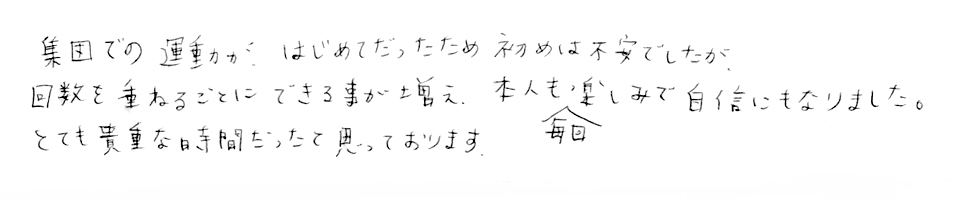 集団での運動が、はじめてだったため初めは不安でしたが、
回数を重ねるごとにできる事が増え、本人も毎回楽しみで自信にもなりました。
とても貴重な時間だったと思っております。